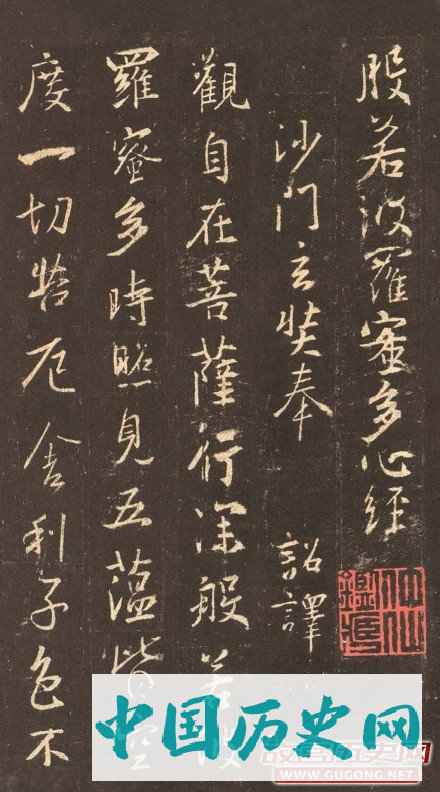 般若波羅蜜多心經
沙門玄奘奉 詔譯
觀自在菩薩行深般若波
羅蜜多時照見五蘊皆空
度一切苦厄舍利子色不
中国历史网
WWW.GUGONG.NET